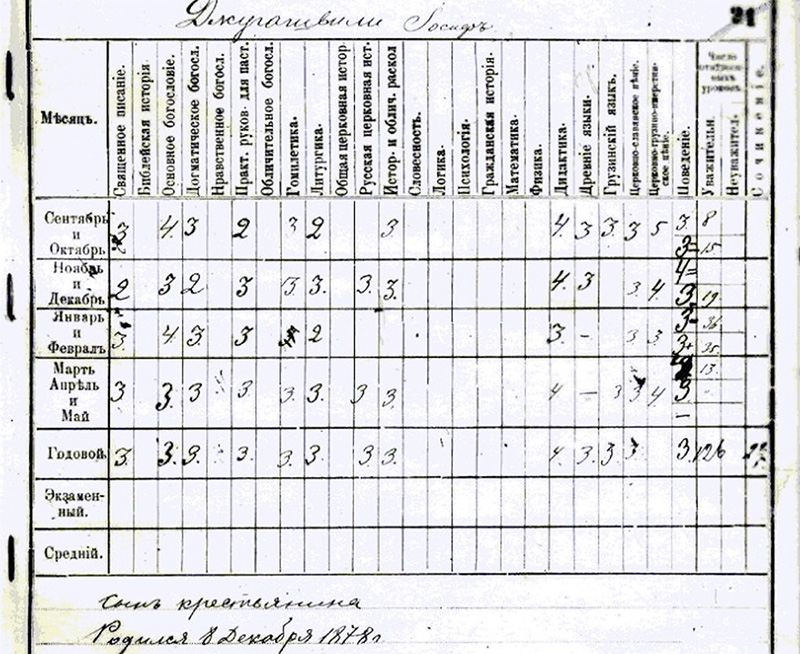 Джугашвили Іосифъ
21
Мѣсяцъ.
Священное писаніе.
Библейская исторія
Основное богословіе.
Догматическое богосл.
Нравственное богосл.
Практ. руков. для паст.
Обличительное богосл.
Гомилетика.
Литургика.
Общая церковная истор.
Русская церковная ист.
Истор. и облич. раскол
Словесность.
Логика.
Психологія.
Гражданская исторія.
Математика.
Физика.
Дидактика.
Древніе языки.
Грузинскій языкъ.
Церковно-славянское пѣніе.
Поведеніе.
Число
уроковъ.
Уважительн.
Неуважител.
Сочиненіе.
Сентябрь
и
Октябрь
4. 3 2 3 2 3 4. 3 3. 3 5 3. 8
3= 15
Ноябрь
и
Декабрь
2 3 2 3 3. 3. 3. 3. 4. 3 3. 4. 4=
3. 19
Январь
и
Февраль
3. 4 3. 3 2 3. - 3 3 36
3+ 35
Мартъ
Апрѣль
и
Май
3 3. 3 3. 3. 3. 3 3. 4 — 3 3 4 3 13.
Годовой.
3. 3. 3. 3. 3. 3. 3. 3. 4. 3. 3 3 3. 126
Экзамен-
ный.
Средній.
сынъ крестьянина
Родился 6 Декабря 1878 г